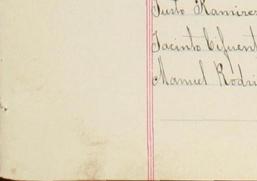 Justo Ramirez
Jacinto Cifuent
Manuel Rodri